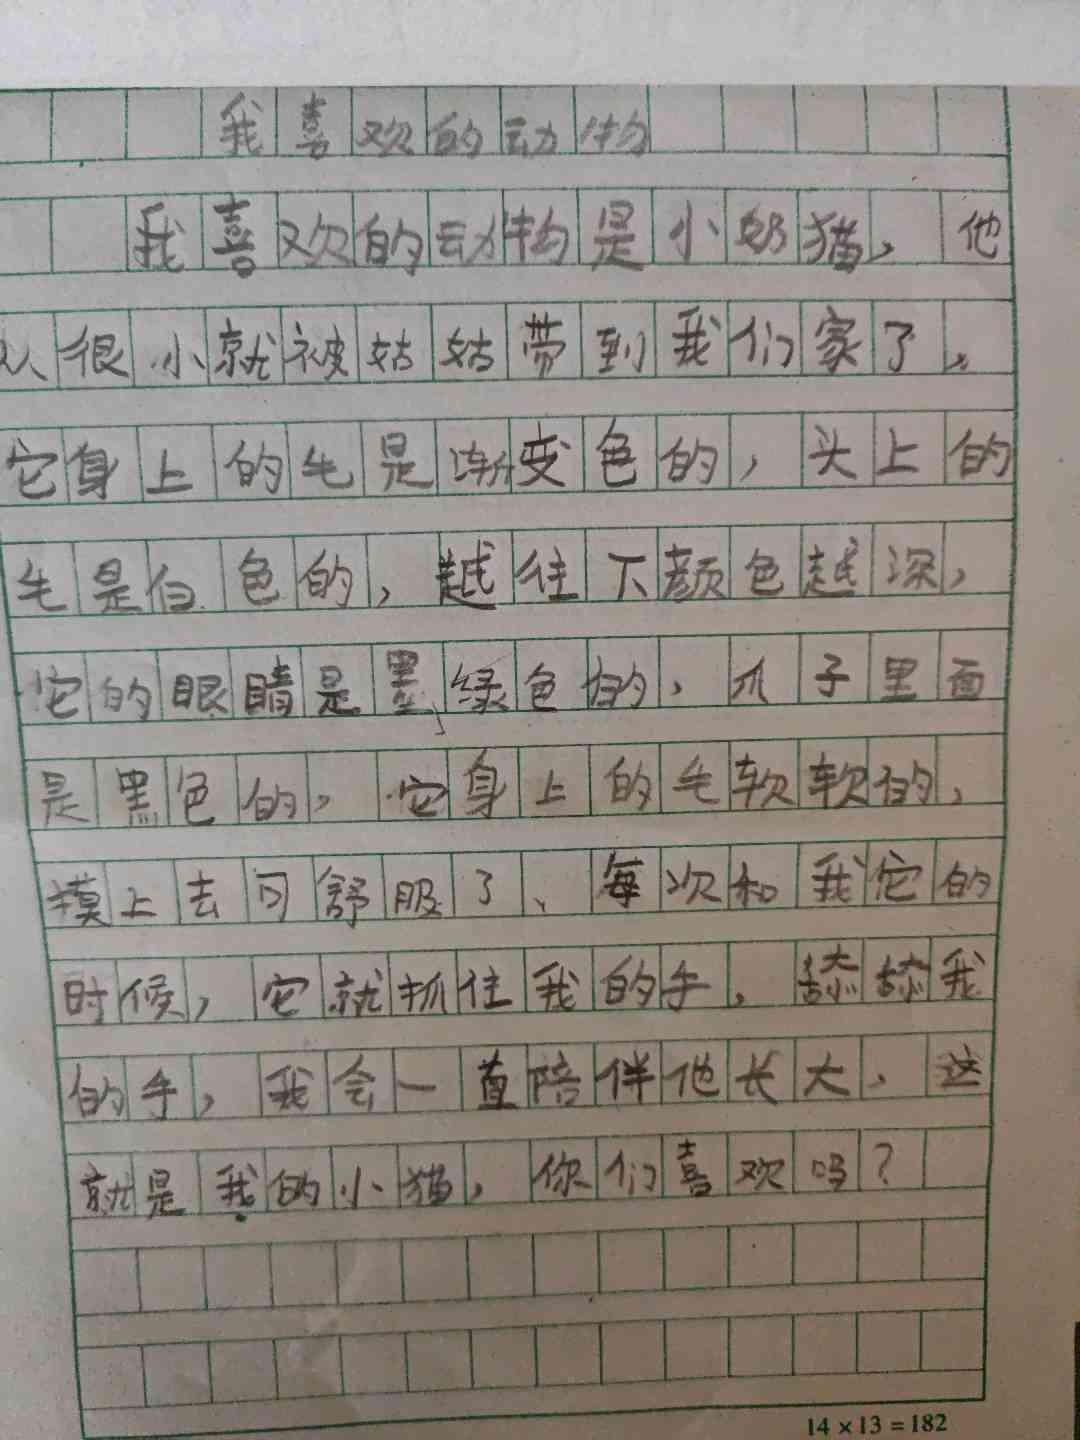 我喜欢的动物
我喜欢的动物是小奶猫，他
从很小就被姑姑带到我们家了，
它身上的毛是渐变色的，头上的
毛是白色的，越往下颜色越深，
它的眼睛是墨绿色的，爪子里面
是黑色的，它身上的毛软软的，
摸上去可舒服了、每次和我它的
时候，它就抓住我的手，舔舔我
的手，我会一直陪伴他长大，这
就是我的小猫，你们喜欢吗？
14×13=182